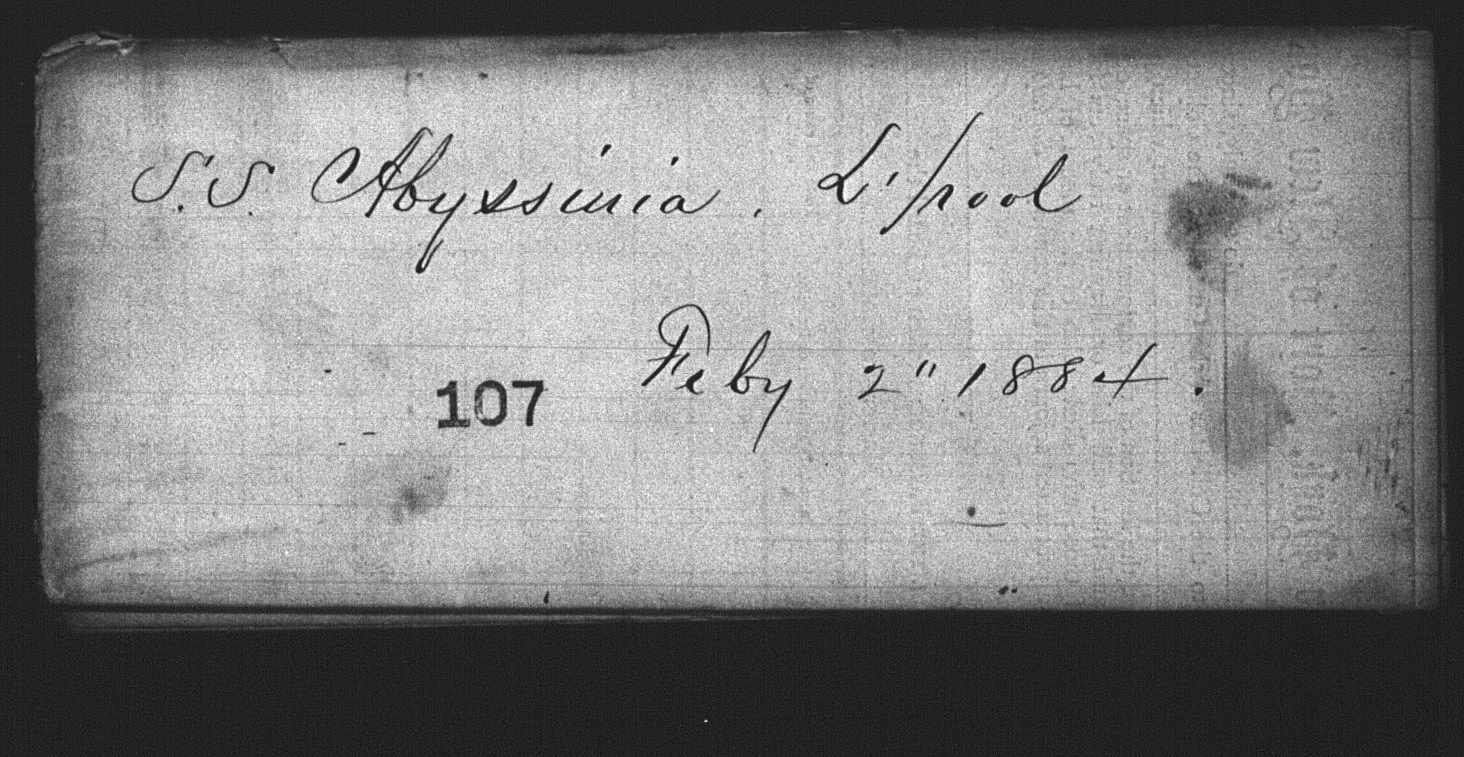 S.S. Abyssinia. L'pool
Feby 2" 1884.
107